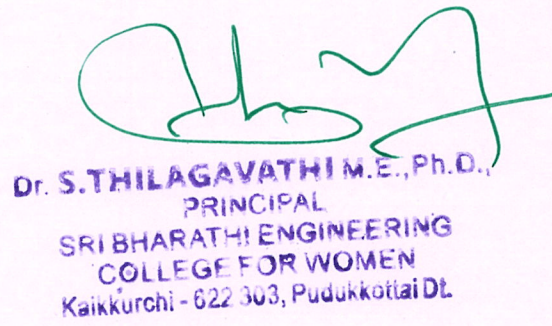 Dr. S.THILAGAVATHI M.E.,Ph.D.,
PRINCIPAL
SRI BHARATHI ENGINEERING
COLLEGE FOR WOMEN
Kaikkurchi - 622 303, Pudukkottai Dt.